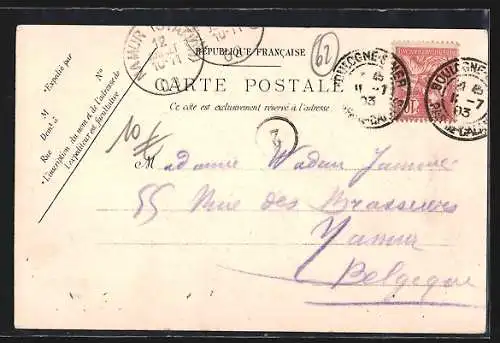 NAMUR
12
10-11
03
10-11
RÉPUBLIQUE FRANÇAISE
62
CARTE POSTALE
Ce côté est exclusivement réservé à l'adresse
BOULOGNE-S-MER
45
11-7
03
PAS-DE-CALAIS
BOULOGNE-S-MER
45
11-7
03
PAS-DE-CALAIS
10
Expédié par
M
Demt à
Rue
N°
L'inscription du nom et de l'adresse de
l'expéditeur est facultative
10
2
Madame Wadin
55 Rue des Brasseurs
Namur
Belgique